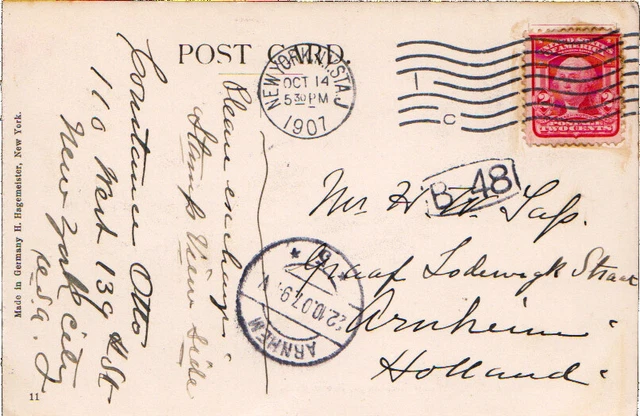 POST CARD.
NEW YORK, N.Y. STA. J
OCT 14
530 PM
1907
1
C
UNITED STATES
OF AMERICA
2 2
POSTAGE
TWO CENTS
Please exchange
Stamps View side
Constance Otto
110 West 139th St
New York City
U.S.A.
B. 48
Mr H. W.
Graaf Lodewijk Straat
Arnheim
Holland
ARNHEM
22.10.07. 9 V
* 5 *
Made in Germany H. Hagemeister, New York.
11